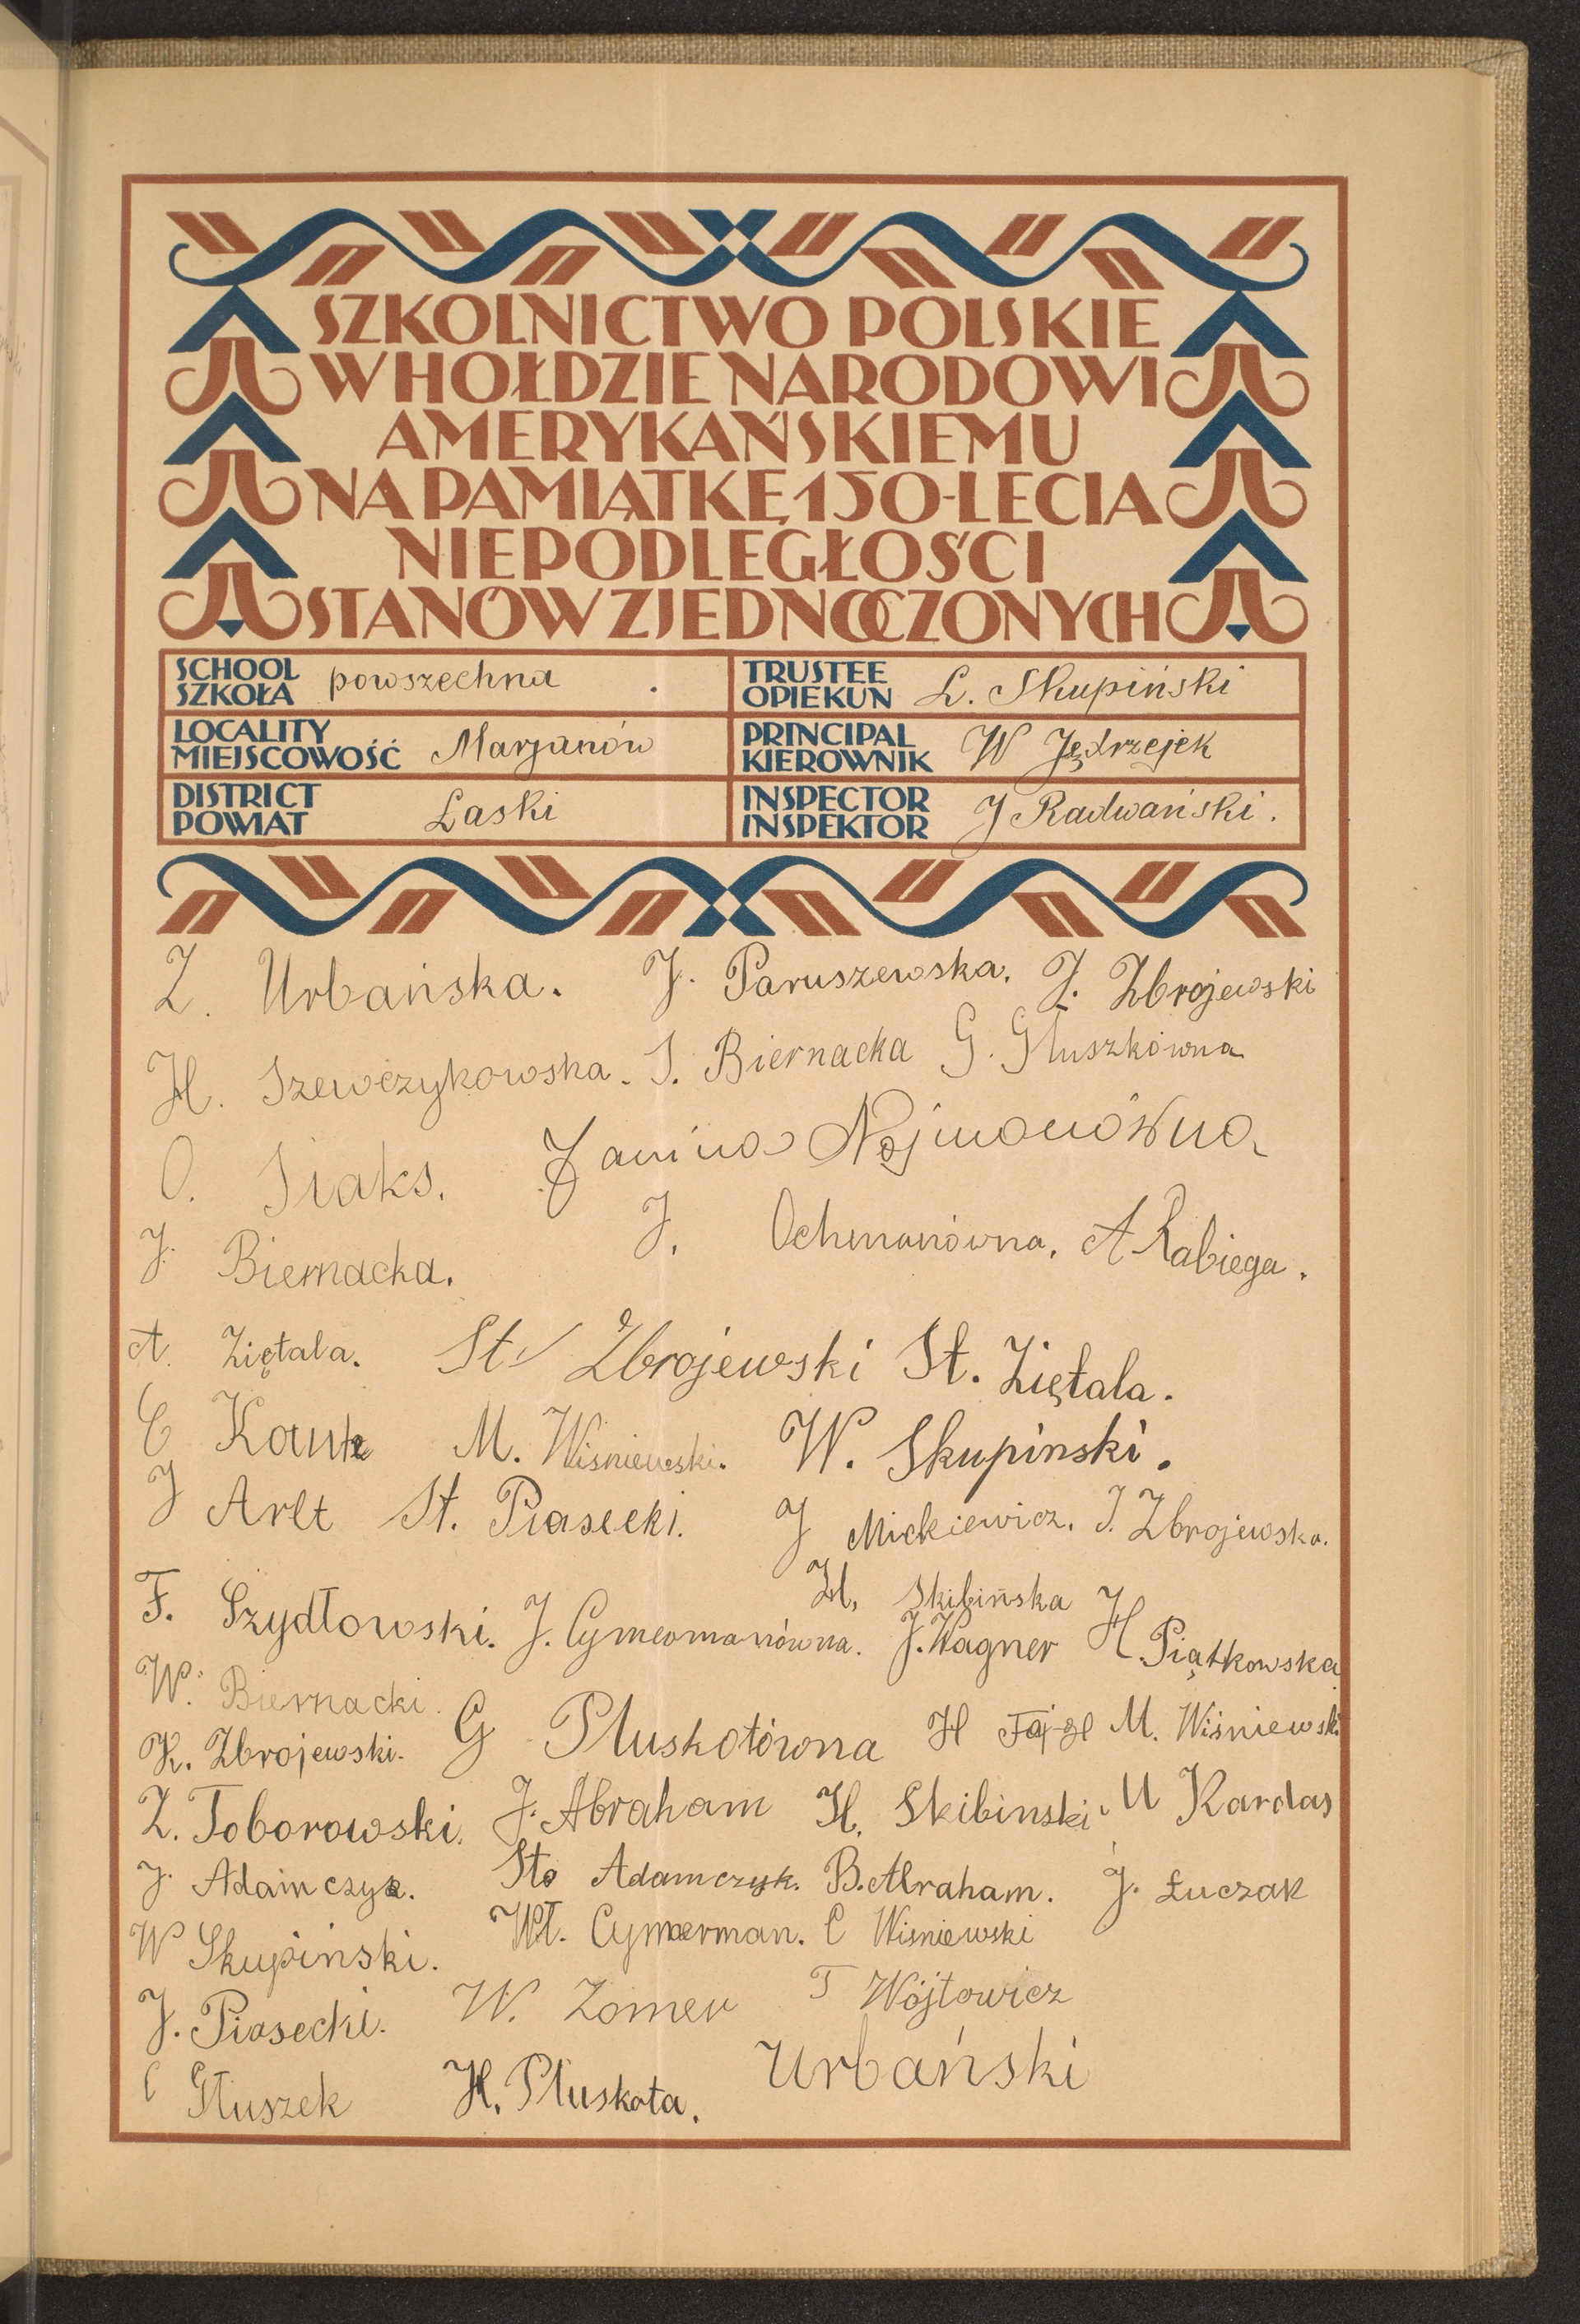 SZKOLNICTWO POLSKIE
W HOŁDZIE NARODOWI
AMERYKAŃSKIEMU
NA PAMIĄTKĘ 150-LECIA
NIEPODLEGŁOŚCI
STANÓW ZJEDNOCZONYCH
SCHOOL
SZKOŁA powszechna .
TRUSTEE
OPIEKUN L. Skupiński
LOCALITY
MIEJSCOWOŚĆ Marjanów
PRINCIPAL
KIEROWNIK W Jędrzejek
DISTRICT
POWIAT Łaski
INSPECTOR
INSPEKTOR J Radwański.
Z. Urbańska. J. Paruszewska. Z. Zbrojewski
H. Szewczykowska. S. Biernacka G. Głuszkówna
O. Siaks. Janina Najmanówna
J. Biernacka. J. Ochmanówna. A Rabiega.
A. Ziętala. St. Zbrojewski St. Ziętala.
C M. Wiśniewski. W. Skupinski.
J Arlt St. Piasecki. J Mickiewicz. J. Zbrojewska.
H. Skibińska
F. Szydłowski. J. Cymermanówna. J. Wagner H. Piątkowska
W. Biernacki.
K. Zbrojewski. G Płuskotówna H M. Wiśniewski
Z. Toborowski. J. Abraham H. Skibinski. M Kardas
J. Adamczyk. St. Adamczyk. B. Abraham. J. Łuczak
W Skupinski. Wł. Cymerman. C Wiśniewski
J. Piasecki. W. Zomer T Wójtowicz
C Głuszek H. Płuskota. Urbański